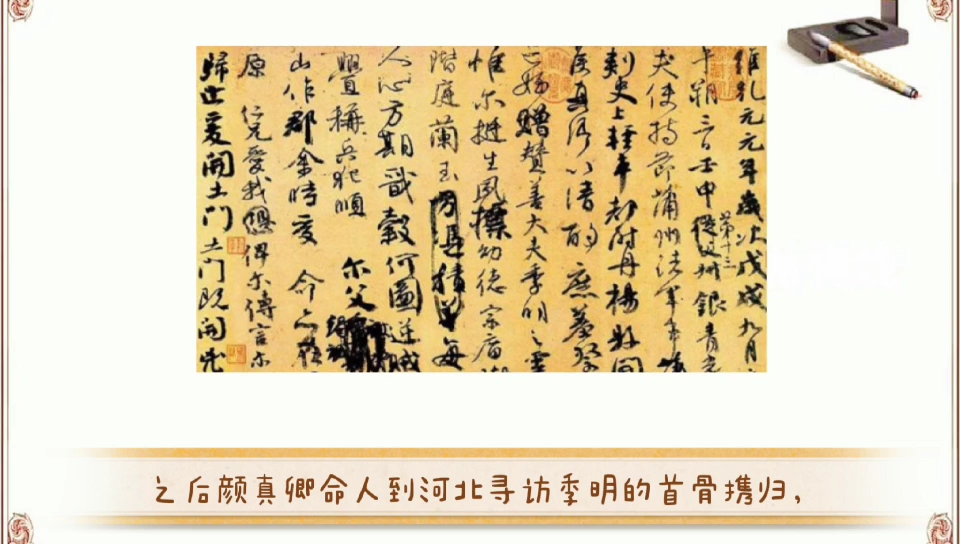 維乾元元年歲次戊戌九月
午朔三日壬申第十三叔銀青光
夫使持節蒲州諸軍事蒲
刺史上輕車都尉丹楊縣開
侯真卿以清酌庶羞祭
亡姪贈贊善大夫季明之靈
惟爾挺生夙標幼德宗廟瑚
階庭蘭玉每
人心方期戩穀何圖逆賊
舋稱兵犯順爾父
山作郡余時受命亦在
原仁兄愛我俾爾傳言爾
歸止爰開土門土門既開兇
之后颜真卿命人到河北寻访季明的首骨携归，